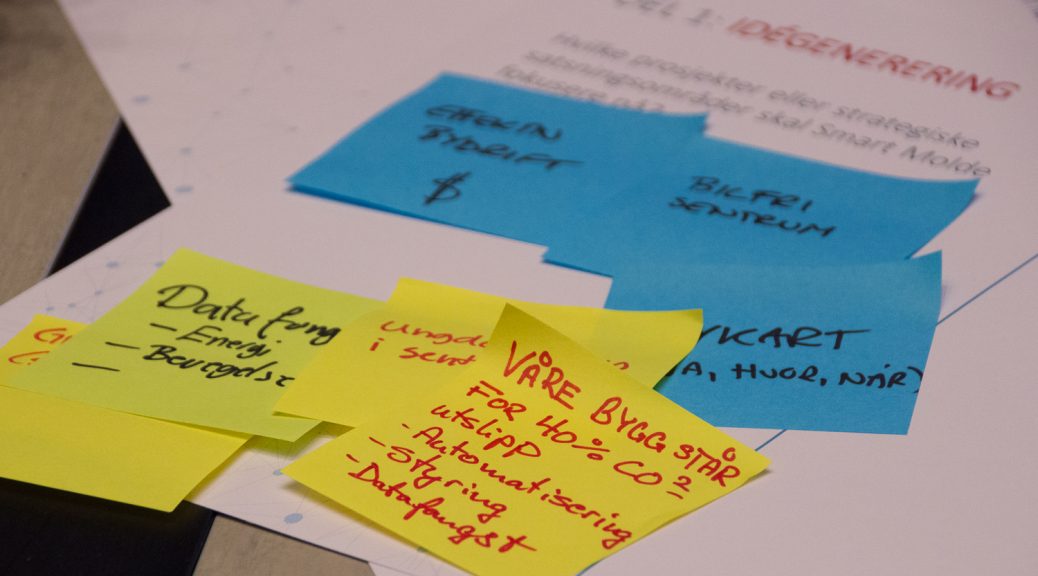 DEL 1: IDÉGENERERING
Hvilke prosjekter eller strategiske
satsningsområder skal Smart Molde
fokusere på
EFFEKTIV
BYDRIFT
$
BILFRI
SENTRUM
YKART
A, HVOR, NÅR)
Data fang
- Energi
- Bevegelse
-
ungd
i sent
VÅRE BYGG STÅR
FOR 40% CO2
utslipp
- Automatisering
- Styring
- Datafangst